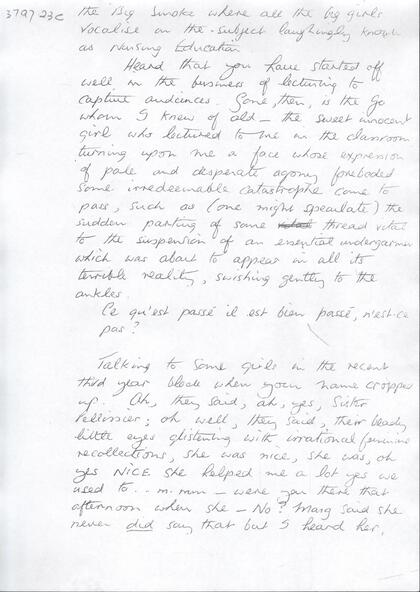 3797 23c
the Big Smoke where all the big girls
vocalise on the subject laughingly known
as Nursing Education.
Heard that you have started off
well in the business of lecturing to
captive audiences. Gone, then, is the Jo
whom I knew of old – the sweet innocent
girl who lectured to me in the classroom
turning upon me a face whose expression
of pale and desperate agony foreboded
some irredeemable catastrophe come to
pass, such as (one might speculate) the
sudden parting of some thread vital
to the suspension of an essential undergarment
which was about to appear in all its
terrible reality, swishing gently to the
ankles.
Ce qu'est passé il est bien passé, n'est-ce
pas?
Talking to some girls in the recent
third year block when your name cropped
up. Oh, they said, ah, yes, Sister
Pellissier; oh well, they said, their beady
little eyes glistening with irrational feminine
recollections, she was nice, she was, oh
yes NICE she helped me a lot yes we
used to .. m. mm – were you there that
afternoon when she – No? Marg said she
never did say that but I heard her,